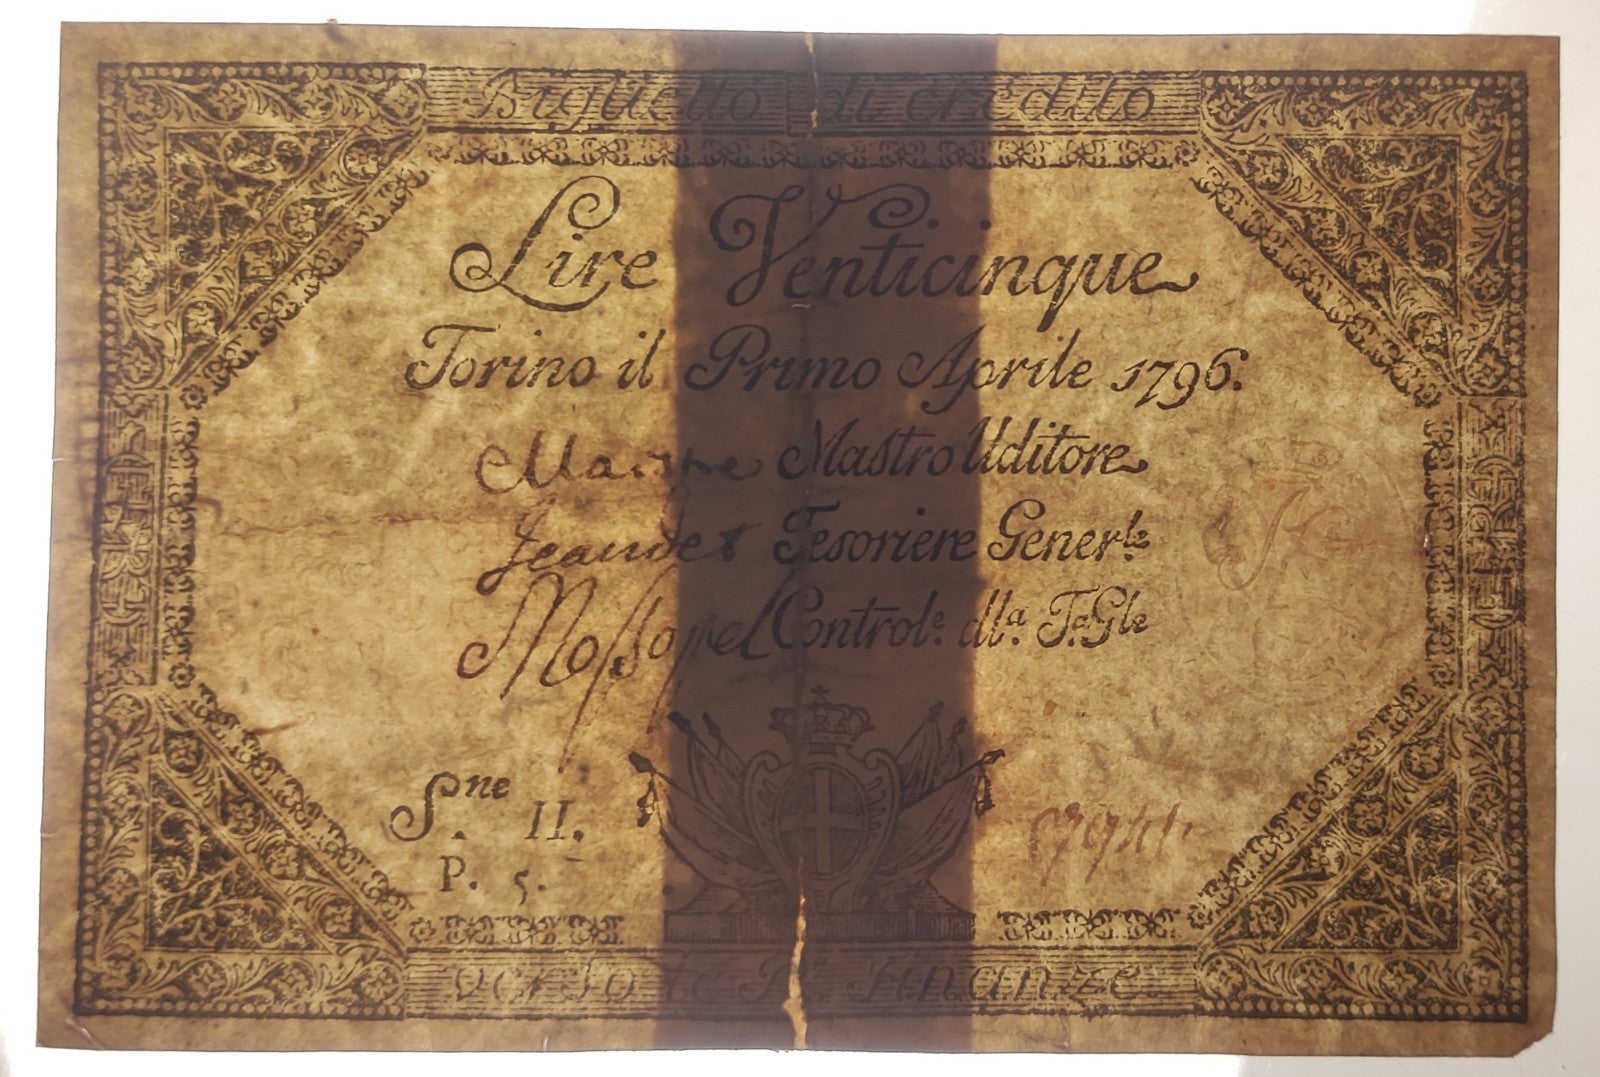 Biglietto di credito
Lire Venticinque
Torino il Primo Aprile 1796.
Mastro Uditore
Tesoriere Gener.le
Control.e dlla. T.a G.le
S.ne II.
P. 5.
verso le R. Finanze